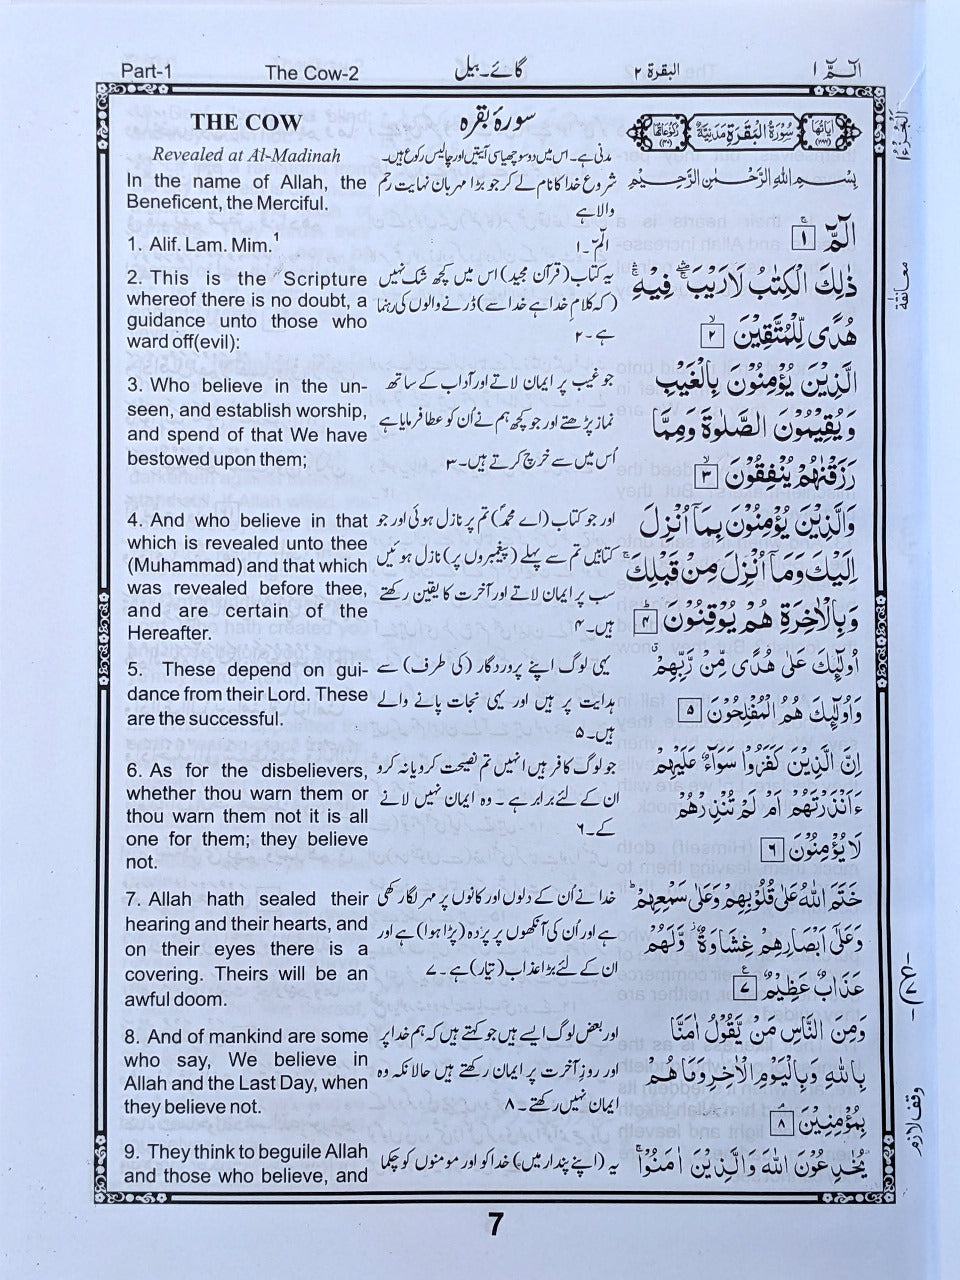 Part-1 The Cow-2 گائے۔بیل البقرة ۲ الٓمّٓ ۱
THE COW
Revealed at Al-Madinah
In the name of Allah, the
Beneficent, the Merciful.
1. Alif. Lam. Mim.¹
2. This is the Scripture
whereof there is no doubt, a
guidance unto those who
ward off(evil):
3. Who believe in the un-
seen, and establish worship,
and spend of that We have
bestowed upon them;
4. And who believe in that
which is revealed unto thee
(Muhammad) and that which
was revealed before thee,
and are certain of the
Hereafter.
5. These depend on gui-
dance from their Lord. These
are the successful.
6. As for the disbelievers,
whether thou warn them or
thou warn them not it is all
one for them; they believe
not.
7. Allah hath sealed their
hearing and their hearts, and
on their eyes there is a
covering. Theirs will be an
awful doom.
8. And of mankind are some
who say, We believe in
Allah and the Last Day, when
they believe not.
9. They think to beguile Allah
and those who believe, and
سورۂ بقرہ
مدنی ہے۔ اس میں دو سو چھیاسی آیتیں اور چالیس رکوع ہیں۔
شروع خدا کا نام لے کر جو بڑا مہربان نہایت رحم
والا ہے
الٓمّ۔۱
یہ کتاب (قرآن مجید) اس میں کچھ شک نہیں
(کہ کلامِ خدا ہے خدا سے) ڈرنے والوں کی رہنما
ہے۔۲
جو غیب پر ایمان لاتے اور آداب کے ساتھ
نماز پڑھتے اور جو کچھ ہم نے اُن کو عطا فرمایا ہے
اُس میں سے خرچ کرتے ہیں۔۳
اور جو کتاب (اے محمدؐ) تم پر نازل ہوئی اور جو
کتابیں تم سے پہلے (پیغمبروں پر) نازل ہوئیں
سب پر ایمان لاتے اور آخرت کا یقین رکھتے
ہیں۔۴
یہی لوگ اپنے پروردگار (کی طرف) سے
ہدایت پر ہیں اور یہی نجات پانے والے
ہیں۔۵
جو لوگ کافر ہیں انہیں تم نصیحت کرو یا نہ کرو
ان کے لئے برابر ہے۔ وہ ایمان نہیں لانے
کے۔۶
خدا نے اُن کے دلوں اور کانوں پر مہر لگا رکھی
ہے اور اُن کی آنکھوں پر پردہ (پڑا ہوا) ہے اور
ان کے لئے بڑا عذاب (تیار) ہے۔۷
اور بعض لوگ ایسے ہیں جو کہتے ہیں کہ ہم خدا پر
اور روزِ آخرت پر ایمان رکھتے ہیں حالانکہ وہ
ایمان نہیں رکھتے۔۸
یہ (اپنے پندار میں) خدا کو اور مومنوں کو چکما
سُوْرَةُ الْبَقَرَةِ مَدَنِيَّةٌ
بِسْمِ اللّٰهِ الرَّحْمٰنِ الرَّحِيْمِ
الٓمّٓ ۱
ذٰلِكَ الْكِتٰبُ لَا رَيْبَ فِيْهِ
هُدًى لِّلْمُتَّقِيْنَ ۲
الَّذِيْنَ يُؤْمِنُوْنَ بِالْغَيْبِ
وَيُقِيْمُوْنَ الصَّلٰوةَ وَمِمَّا
رَزَقْنٰهُمْ يُنْفِقُوْنَ ۳
وَالَّذِيْنَ يُؤْمِنُوْنَ بِمَآ اُنْزِلَ
اِلَيْكَ وَمَآ اُنْزِلَ مِنْ قَبْلِكَ
وَبِالْاٰخِرَةِ هُمْ يُوْقِنُوْنَ ۴
اُولٰٓئِكَ عَلٰى هُدًى مِّنْ رَّبِّهِمْ
وَاُولٰٓئِكَ هُمُ الْمُفْلِحُوْنَ ۵
اِنَّ الَّذِيْنَ كَفَرُوْا سَوَآءٌ عَلَيْهِمْ
ءَاَنْذَرْتَهُمْ اَمْ لَمْ تُنْذِرْهُمْ
لَا يُؤْمِنُوْنَ ۶
خَتَمَ اللّٰهُ عَلٰى قُلُوْبِهِمْ وَعَلٰى سَمْعِهِمْ
وَعَلٰٓى اَبْصَارِهِمْ غِشَاوَةٌ وَّلَهُمْ
عَذَابٌ عَظِيْمٌ ۷
وَمِنَ النَّاسِ مَنْ يَّقُوْلُ اٰمَنَّا
بِاللّٰهِ وَبِالْيَوْمِ الْاٰخِرِ وَمَا هُمْ
بِمُؤْمِنِيْنَ ۸
يُخٰدِعُوْنَ اللّٰهَ وَالَّذِيْنَ اٰمَنُوْا
معانقة
وقف لازم
7